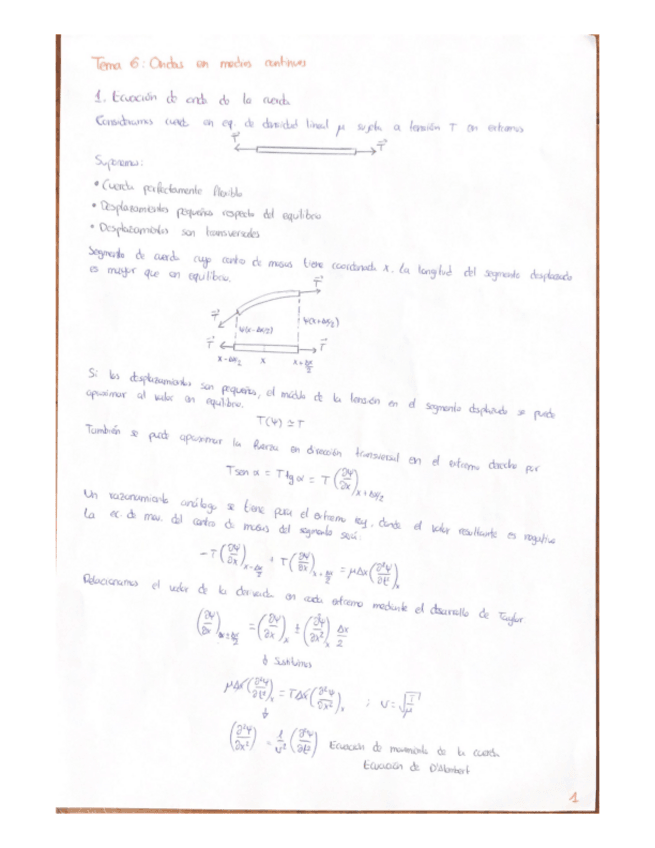 Tema 6: Ondas en medios continuos
1. Ecuación de onda de la cuerda
Consideramos cuerda en eq. de densidad lineal μ sujeta a tensión T en extremos
T⃗ T⃗
Suponemos:
• Cuerda perfectamente flexible
• Desplazamientos pequeños respecto del equilibrio
• Desplazamientos son transversales
Segmento de cuerda cuyo centro de masas tiene coordenada x. La longitud del segmento desplazado
es mayor que en equilibrio.
T⃗
T⃗ ψ(x-Δx/2) ψ(x+Δx/2)
T⃗ T⃗
x-Δx/2 x x+Δx/2
Si los desplazamientos son pequeños, el módulo de la tensión en el segmento desplazado se puede
aproximar al valor en equilibrio.
T(ψ) ≃ T
También se puede aproximar la fuerza en dirección transversal en el extremo derecho por
T sen α ≃ T tg α = T (∂ψ/∂x)x+Δx/2
Un razonamiento análogo se tiene para el extremo izq, donde el valor resultante es negativo
La ec. de mov. del centro de masas del segmento será:
-T (∂ψ/∂x)x-Δx/2 + T (∂ψ/∂x)x+Δx/2 = μΔx (∂²ψ/∂t²)x
Relacionamos el valor de la derivada en cada extremo mediante el desarrollo de Taylor
(∂ψ/∂x)x±Δx/2 = (∂ψ/∂x)x ± (∂²ψ/∂x²)x Δx/2
↓ Sustituimos
μΔx (∂²ψ/∂t²)x = TΔx (∂²ψ/∂x²)x ; v = √(T/μ)
↓
(∂²ψ/∂x²) = 1/v² (∂²ψ/∂t²) Ecuación de movimiento de la cuerda
Ecuación de D'Alambert
1